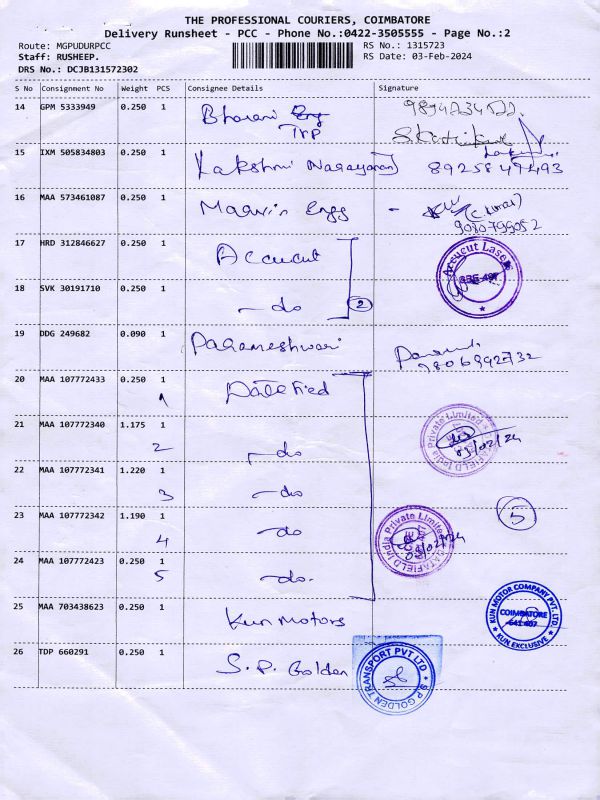 THE PROFESSIONAL COURIERS, COIMBATORE
Delivery Runsheet - PCC - Phone No.:0422-3505555 - Page No.:2
Route: MGPUDURPCC
RS No.: 1315723
Staff: RUSHEEP.
RS Date: 03-Feb-2024
DRS No.: DCJB131572302
S No Consignment No Weight PCS Consignee Details Signature
14 GPM 5333949 0.250 1 Bharani Engg
TVP
15 IXM 505834803 0.250 1 Lakshmi Narayanan
16 MAA 573461087 0.250 1 Magvin Engg - (C. Kumar)
9080799052
17 HRD 312846627 0.250 1 Accucut
Accucut Laser
18 SVK 30191710 0.250 1 - do 2
19 DDG 249682 0.090 1 Parameshwari
9806992732
20 MAA 107772433 0.250 1 Datafied
1
21 MAA 107772340 1.175 1 - do
2
DATAFIELD India Private Limited
03/02/24
22 MAA 107772341 1.220 1 - do
3
23 MAA 107772342 1.190 1 - do
4
5
DATAFIELD India Private Limited
03/02/24
24 MAA 107772423 0.250 1 - do.
5
25 MAA 703438623 0.250 1 Kun Motors
KUN MOTOR COMPANY PVT. LTD.
COIMBATORE
641 407
KUN EXCLUSIVE
26 TDP 660291 0.250 1 S.P. Golden
S P GOLDEN TRANSPORT PVT LTD